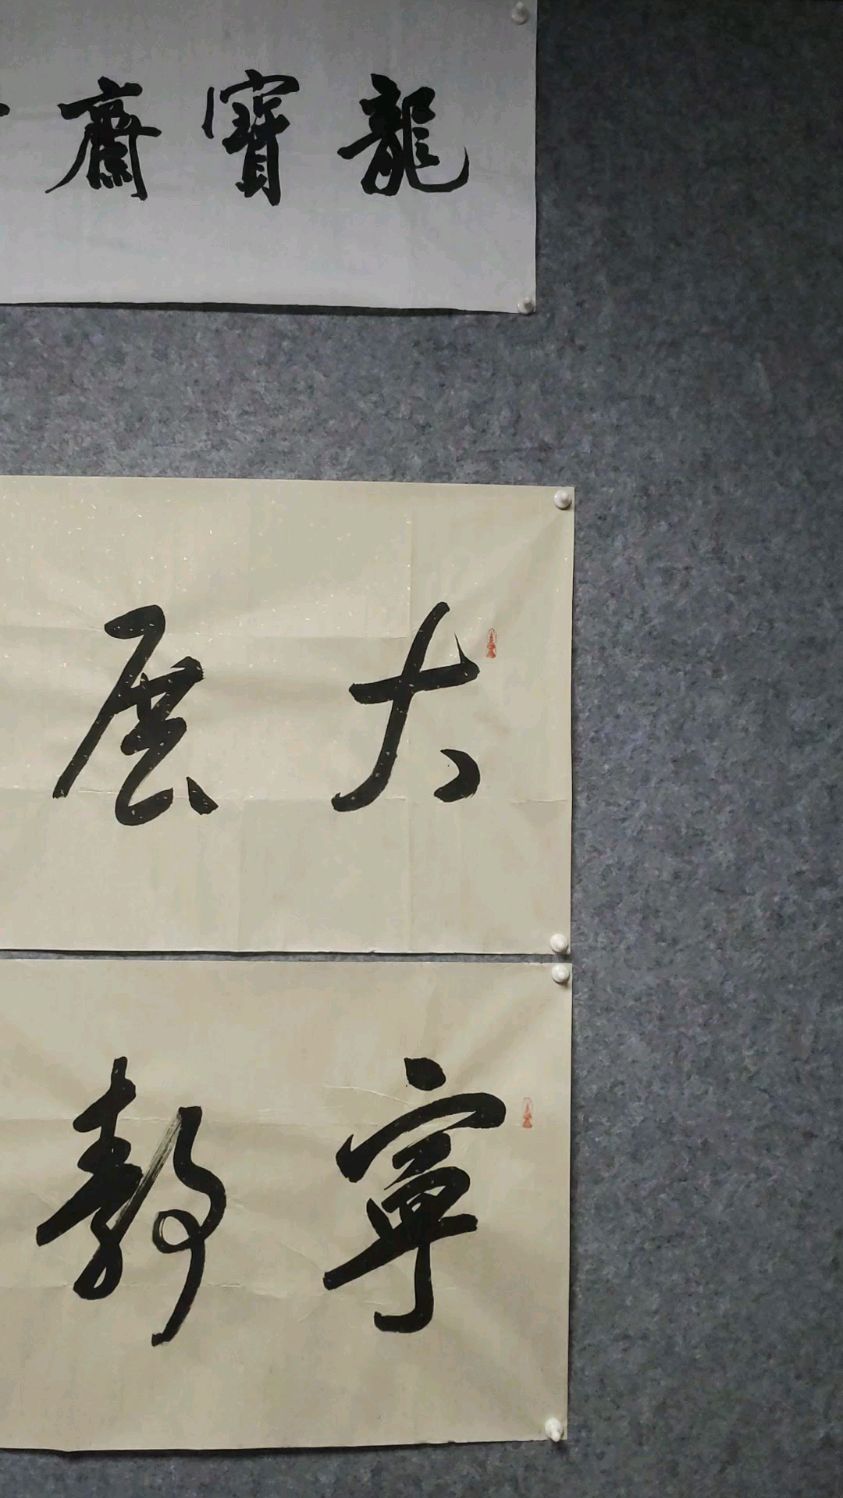 龍寶齋
大展
寧靜